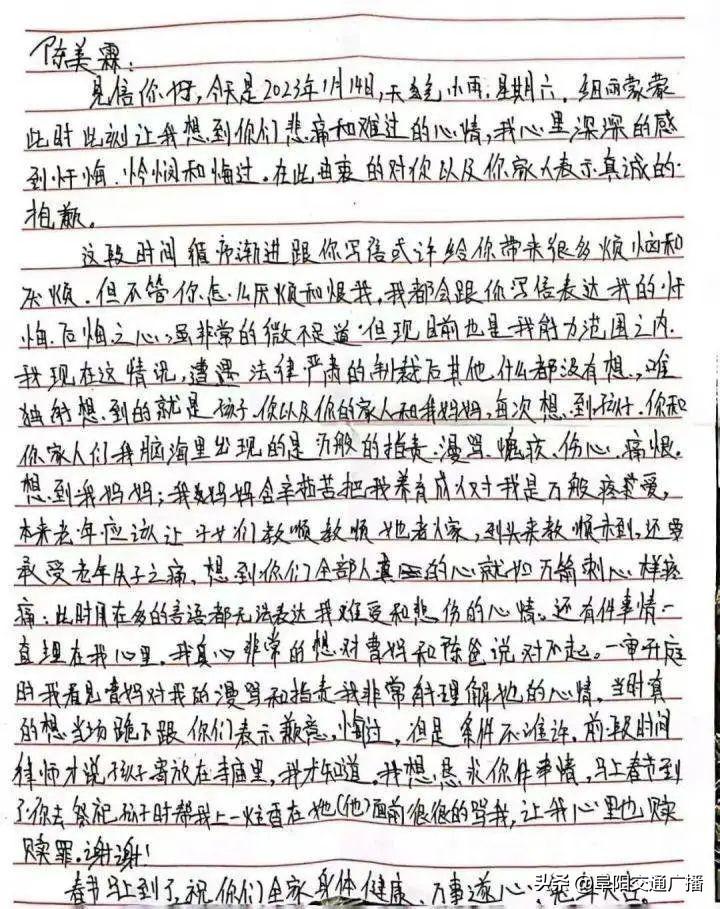 陈美霖:
见信你好,今天是2023年1月14日,天气小雨.星期六.细雨蒙蒙
此时此刻让我想到你们悲痛和难过的心情,我心里深深的感
到忏悔.怜悯和悔过.在此由衷的对你以及你家人表示真诚的
抱歉。
这段时间循序渐进跟你写信或许给你带来很多烦恼和
厌烦.但不管你怎么厌烦和恨我,我都会跟你写信表达我的忏
悔.后悔之心.虽非常的微不足道.但现目前也是我能力范围之内.
我现在这情况,遭遇法律严肃的制裁后其他什么都没有想,唯
独能想到的就是孩子.你以及你的家人和我妈妈,每次想到孩子.你和
你家人们我脑海里出现的是万般的指责.漫骂.愧疚.伤心.痛恨.
想到我妈妈;我妈妈含辛茹苦把我养育成人对我是万般疼爱,
本来老年应该让子女们孝顺孝顺她老人家,到头来孝顺未到,还要
承受老年失子之痛.想到你们全部人真的心就如万箭刺心样疼
痛:此时用在多的言语都无法表达我难受和悲伤的心情。还有件事情一
直埋在我心里.我真心非常的想对曹妈和陈爸说对不起。一审开庭
时我看见曹妈对我的漫骂和指责我非常能理解她的心情,当时真
的想当场跪下跟你们表示歉意.悔过,但是条件不准许.前段时间
律师才说孩子寄放在寺庙里,我才知道.我想恳求你件事情.马上春节到
了你去祭祀孩子时帮我上一炷香在她(他)面前狠狠的骂我,让我心里也赎
赎罪.谢谢!
春节马上到了,祝你们全家身体健康.万事遂心.
头条 @阜阳交通广播